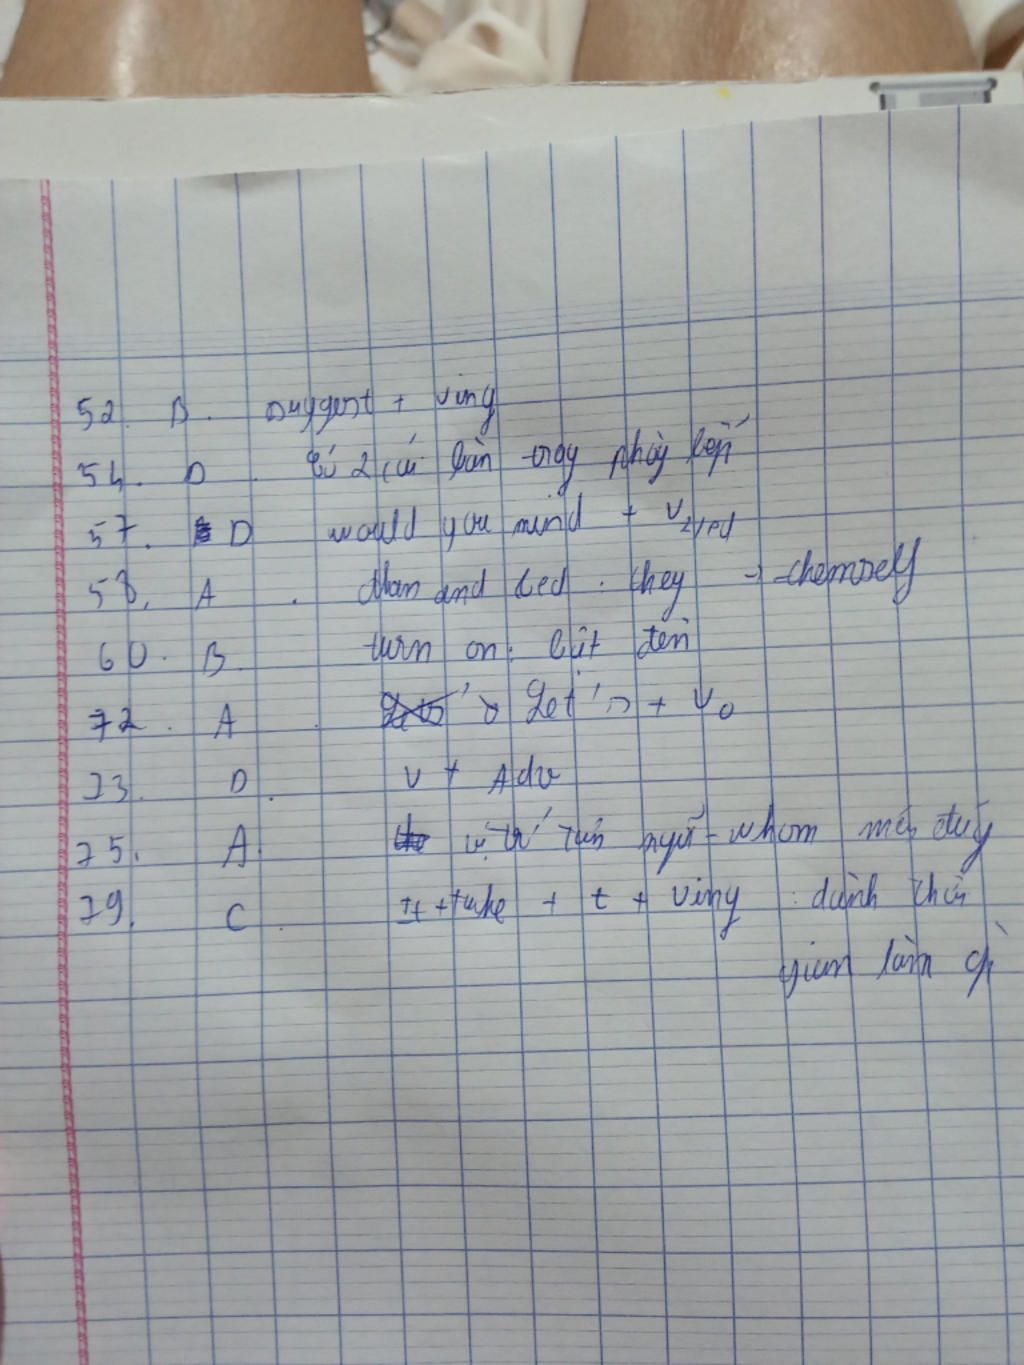 52. B. suggest + ving
54. D. Có 2 cái bàn trong phòng bếp
57. D would you mind + V2/ed
58. A. Nan and Led : they → themself
60. B. turn on: bật đèn
72. A. Let's + Vo
73. D. V + Adv
75. A. vị trí tân ngữ - whom mới đúng
79. C. It + take + t + Ving : dành thời
gian làm gì